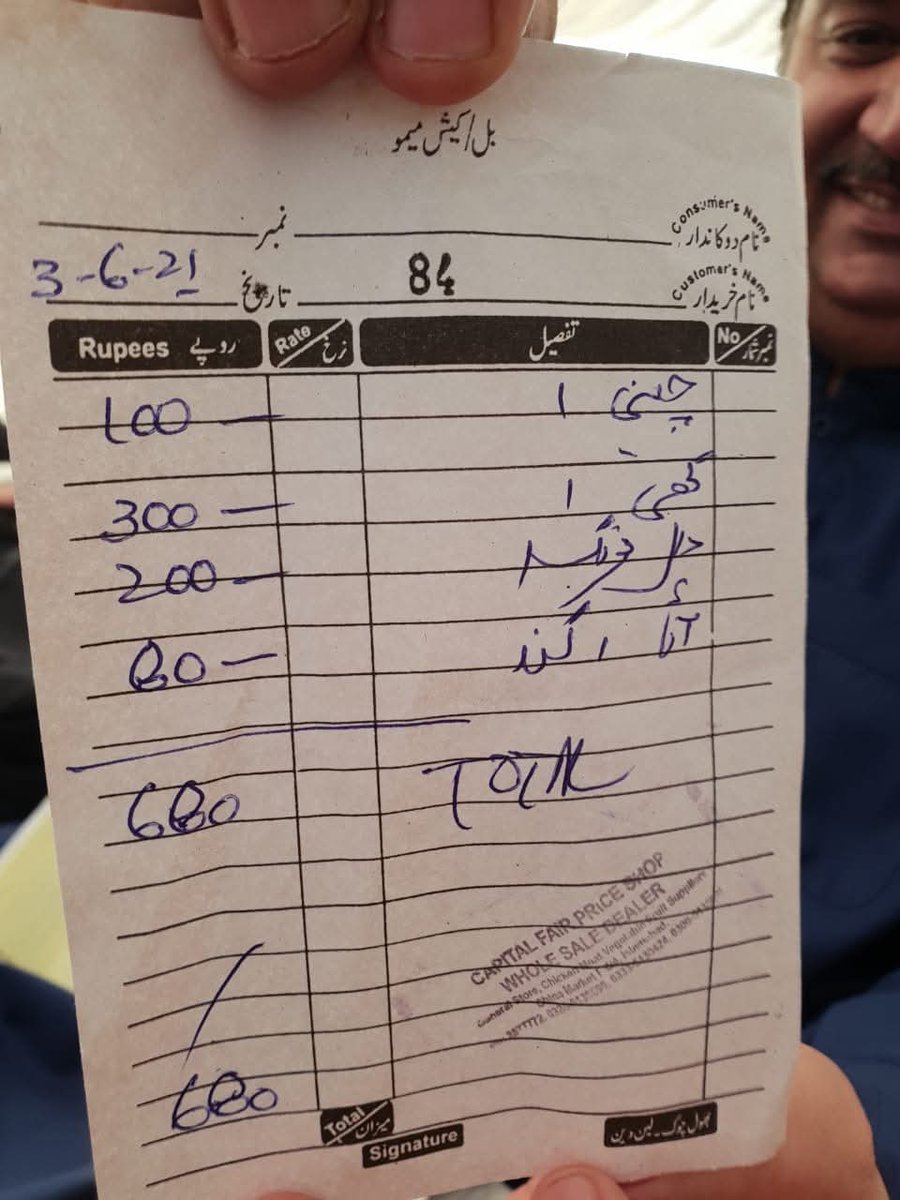 بل/کیش میمو
Consumer's Name
نام دوکاندار نمبر
Customer's Name
نام خریدار 84 تاریخ 3-6-21
No نمبر شمار تفصیل Rate نرخ Rupees روپے
چینی 1 100
گھی 1 300
دال 200
آٹا 80
TOTAL 680
CAPITAL FAIR PRICE SHOP
WHOLE SALE DEALER
General Store, Chicken Meat Vegetable Fruit Suppliers
China Market Islamabad.
680
Total میزان
Signature
بھول چوک۔لین دین